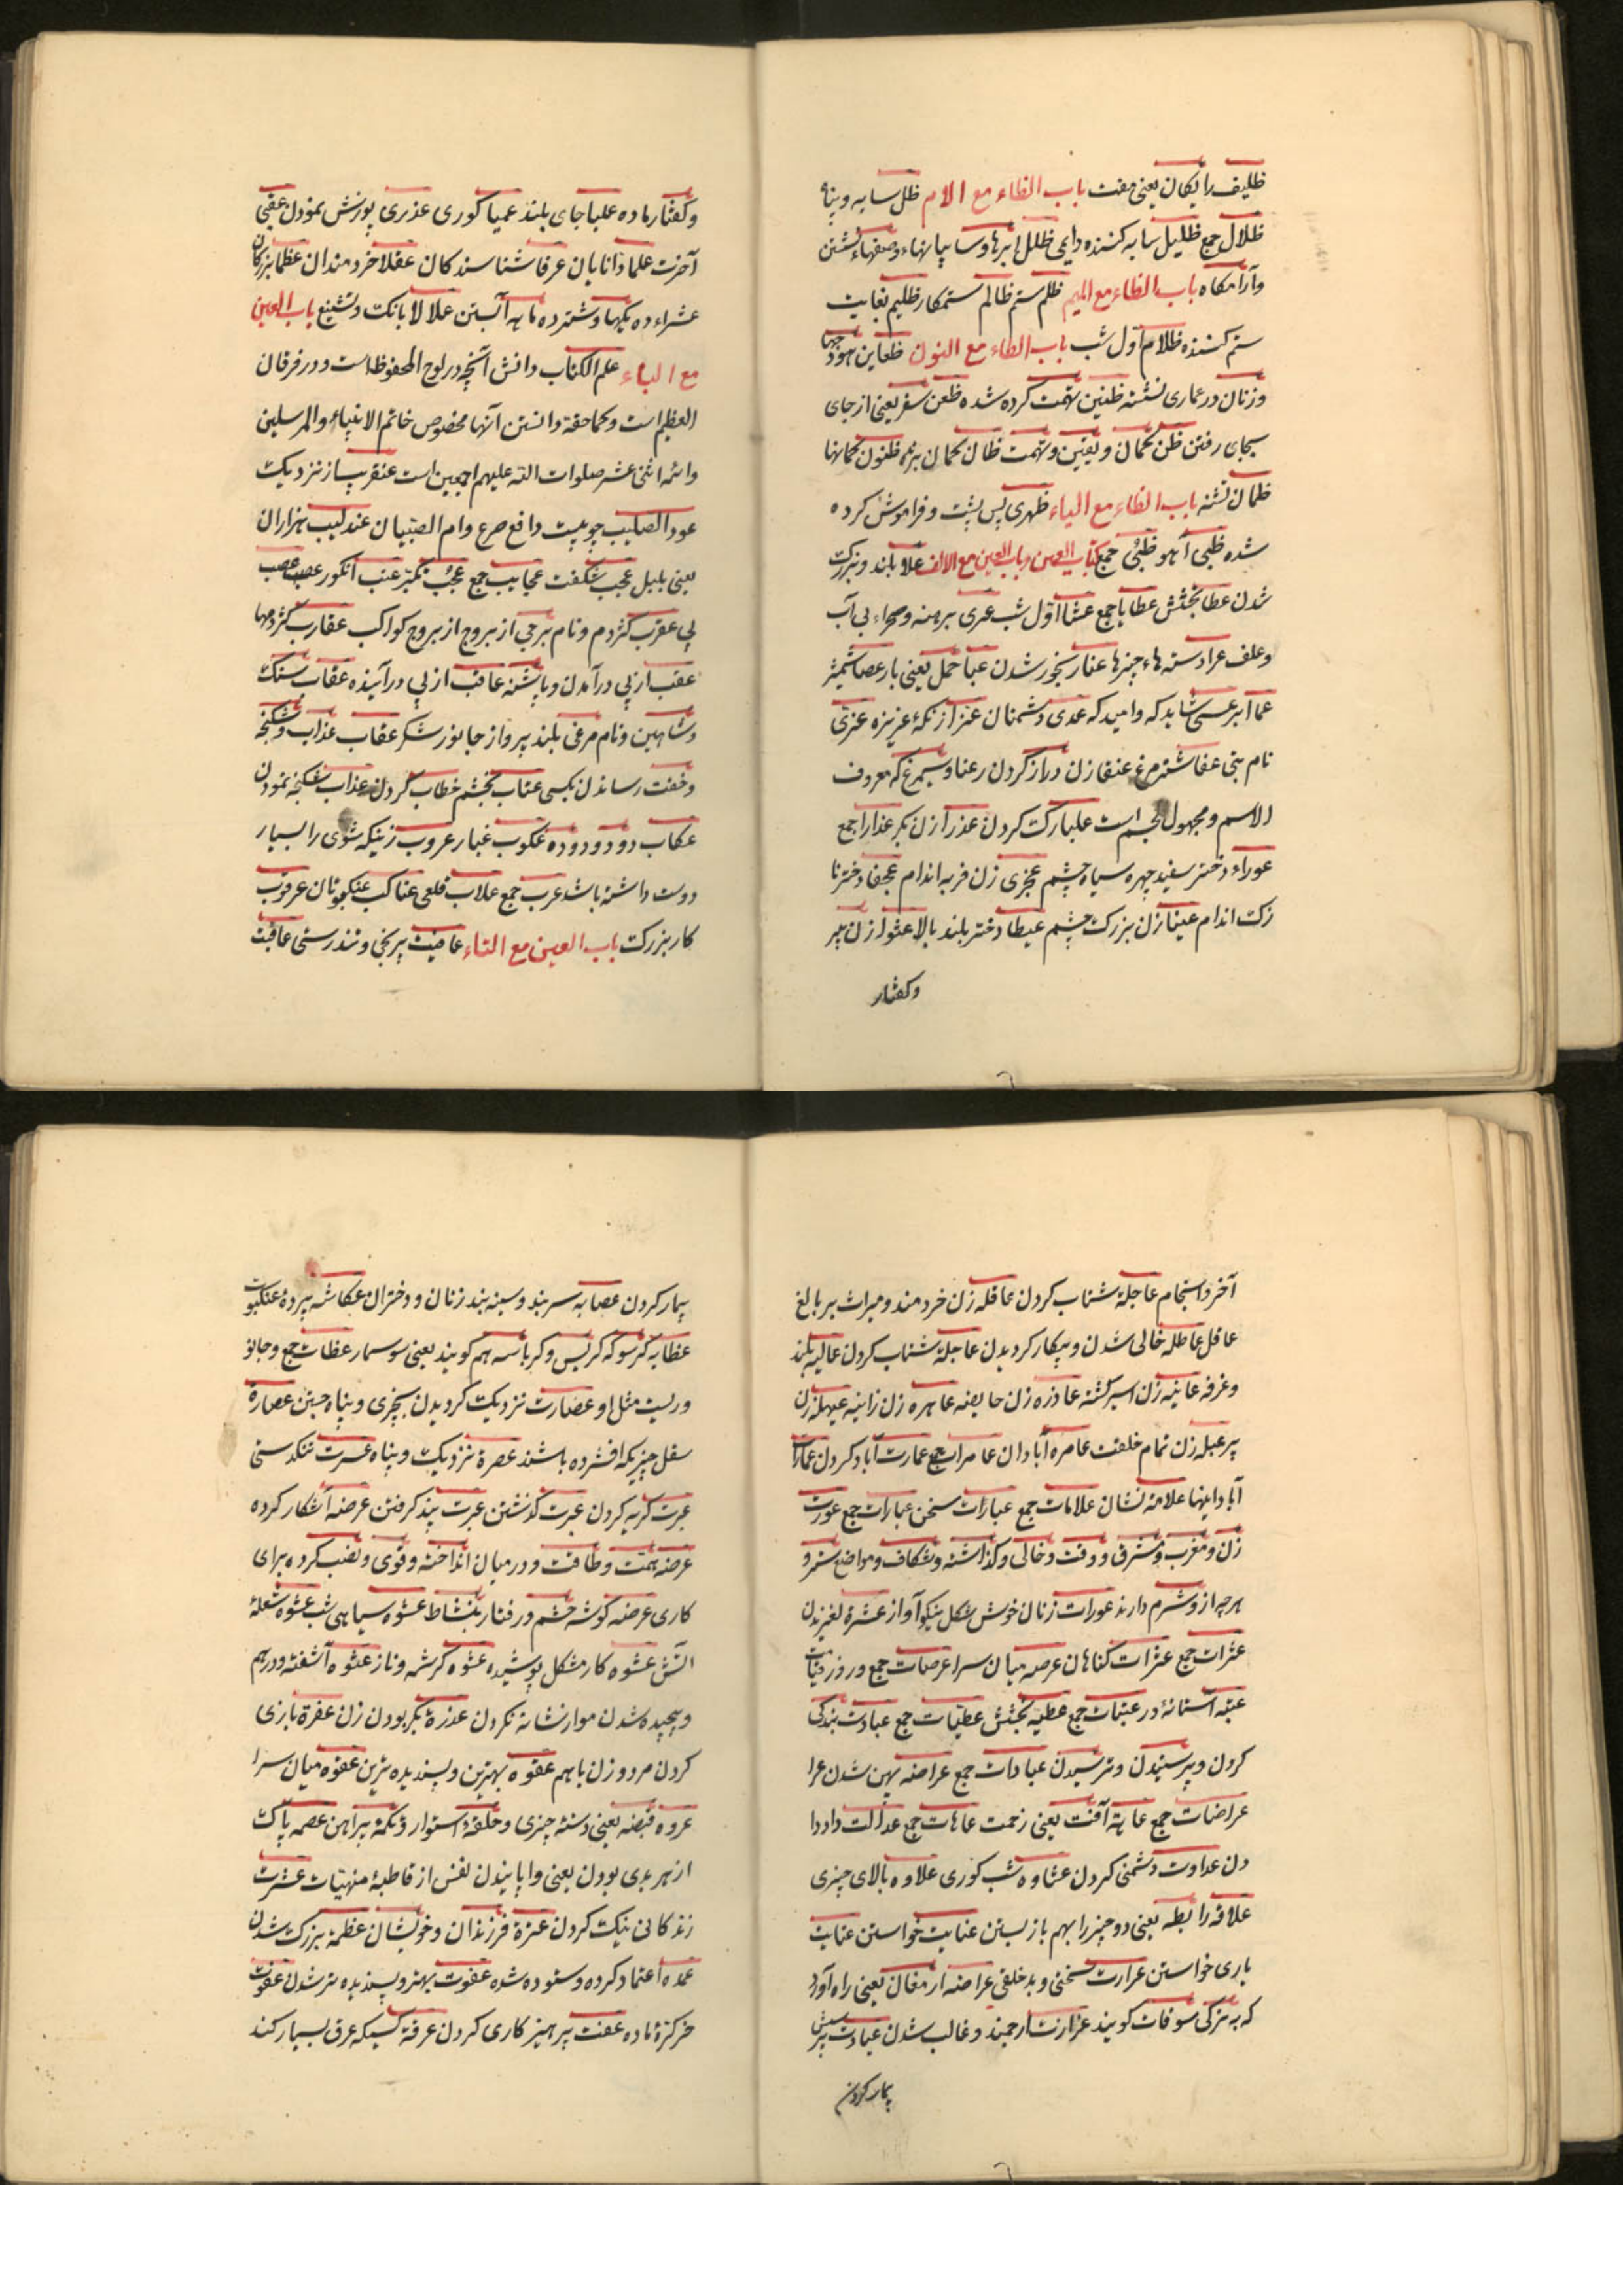 ظلیف رایکان یعنی مفت باب الظاء مع الام ظل سایه و پناه
ظلال جمع ظلیل سایه کننده دایمی ظلل ابرها و سایبانهاء و صفهاء نشتن
و آرامکاه باب الظاء مع المیم ظلم ستم ظالم ستمکار ظلیم بغایت
ستم کننده ظلام اول شب باب الظاء مع النون ظعاین هودجها
و زنان در عماری نشسته ظنین تهمت کرده شده ظعن سفر یعنی از جای
بجای رفتن ظن کمان و یقین و تهمت ظان کمان برنده ظنون کمانها
ظمان تشنه باب الظاء مع الیاء ظهری پس پشت و فراموش کرده
شده ظبی آهو ظبیّ جمع کتاب العین باب العین مع الالف علا بلند و بزرک
شدن عطا بخشش عطایا جمع عشا اول شب عری برهنه و صحراء بی آب
و علف عرا دسته هاء چیزها عنا رنجور شدن عبا حمل یعنی بار عصا شمشیر
عما ابر عسی شاید که و امید که عدی دشمنان عزیزه عزی
نام بتی عنقا زن دراز کردن رعنا و سیمرغ که معروف
الاسم و مجهول الجسم است علبا رک کردن عذرا زن بکر عذارا جمع
عوراء دختر سفید چهره سیاه چشم عجزی زن فربه اندام عجفا دختر نا
زک اندام عینا زن بزرک چشم عیطا دختر بلند بالا عثوا زن پیر
و کفتار
و کفتار ماده علیا جای بلند عمیا کوری عذری پوزش نمودن عقبی
آخرت علما دانایان عرفا شناسندکان عقلا خردمندان عظما بزرکان
عشراء ده یکها و شتر ده ماهه آبستن علالا بانک و تشنیع باب العین
مع الباء علم الکتاب دانش آنچه در لوح المحفوظ است و در فرقان
العظیم است و کماحقه دانستن آنها مخصوص خاتم الانبیاء و المرسلین
و ائمه اثنی عشر صلوات الله علیهم اجمعین است عنقریب از نزدیک
عود الصلیب چوبیست دافع صرع و ام الصبیان عندلیب هزاران
یعنی بلبل عجب شکفت عجایب جمع عجب تکبر عنب انکور عصب عصب
پی عقرب کژدم و نام برجی از بروج از بروج کواکب عقارب کژدمها
عقب از پی در آمدن و پاشنه عاقب از پی در آینده عقاب سنک
و شاهین و نام مرغی بلند پرواز جانور شکر عقاب عذاب و شکنجه
و خفت رساندن بکسی عتاب بخشم خطاب کردن عذاب شکنجه نمودن
عکاب دود و دوده عکوب غبار عروب زنیکه شوی را بسیار
دوست داشته باشد عرب جمع علاب قلعی عناکب عنکبوتان عرقوب
کار بزرک باب العین مع التاء عافیت بیرنجی و تندرستی عاقبت
آخر و انجام عاجلة شتاب کردن عاقله زن خردمند و میراث بر بالغ
عاقل عاطله خالی شدن و بیکار کردیدن عاجلة شتاب کردن عالیه بلند
و غرفه عانیه زن اسیر کشته عاذره زن حایضه عاهره زن زانیه عیهله زن
پیر عبله زن تمام خلقت عامره آبادان عامرات جمع عمارت آباد کردن عمارات
آبادانیها علامة نشان علامات جمع عبارات سخن عبارات جمع عورت
زن و مغرب و مشرق و وقت و خالی و کذاشته و شکاف و مواضع ستر و
هرچه از و شرم دارند عورات زنان خوش شکل نیکو آواز عثرة لغزیدن
عثرات جمع عثرات کناهان عرصه میان سرا عرصات جمع و روز قیامت
عتبه آستانهٔ در عتبات جمع عطیه بخشش عطیات جمع عبادت بندکی
کردن و پرستیدن و ترسیدن عبادات جمع عراضه پهن شدن عرا
عراضات جمع عاهة آفت یعنی زحمت عاهات جمع عدالت داد دا
دن عداوت دشمنی کردن عشاوه شب کوری علاوه بالای چیزی
علاقه رابطه یعنی دو چیز را بهم باز بستن عنایت خواستن عنایت
یاری خواستن عرارت سختی و بدخلقی عراضه ارمغان یعنی راه آورد
که به ترکی سوقات کویند عزازت ارجمند و غالب شدن عیادت پرسش
بیمار کردن
بیمار کردن عصابه سربند و سینه بند زنان و دختران عکاشه پردهٔ عنکبوت
عظایه کرسوکه کربس و کرباسه هم کویند یعنی سوسمار عظات جمع و جانو
وریست مثل او عصارت نزدیک کردیدن بچیزی و پناه جستن عصارة
سفل چیزیکه افشرده باشند عصرة نزدیک و پناه عسرت تنکدستی
عبرت کریه کردن عبرت کذشتن عبرت پند کرفتن عرضه آشکار کرده
عرضه همت و طاقت و در میان انداخته و قوی و نصب کرده برای
کاری عرضه کوشه چشم و رفتار بنشاط عشوه سیاهی شب عشوه شعلهٔ
آتش عشوه کار مشکل پوشیده عشوه کرشمه و ناز عثوه آشفته و درهم
و پیچیده شدن مو از شانه نکردن عذرة بکر بودن زن عفرة بازی
کردن مرد و زن باهم عفوه بهترین و پسندیده ترین عقوه میان سرا
عروه قبضه یعنی دسته چیزی و حلقه و استوار و تکمهٔ پیراهن عصمه پاک
از هر بدی بودن یعنی واپاییدن نفس از قاطبهٔ منهیات عشرت
زندکانی نیک کردن عترة فرزندان و خویشان عظمة بزرک شدن
عمده اعتماد کرده و ستوده شده عفوت بهتر و پسندیده تر شدن عفوت
خر کرّهٔ ماده عفت پرهیزکاری کردن عرقة کسیکه عرق بسیار کند